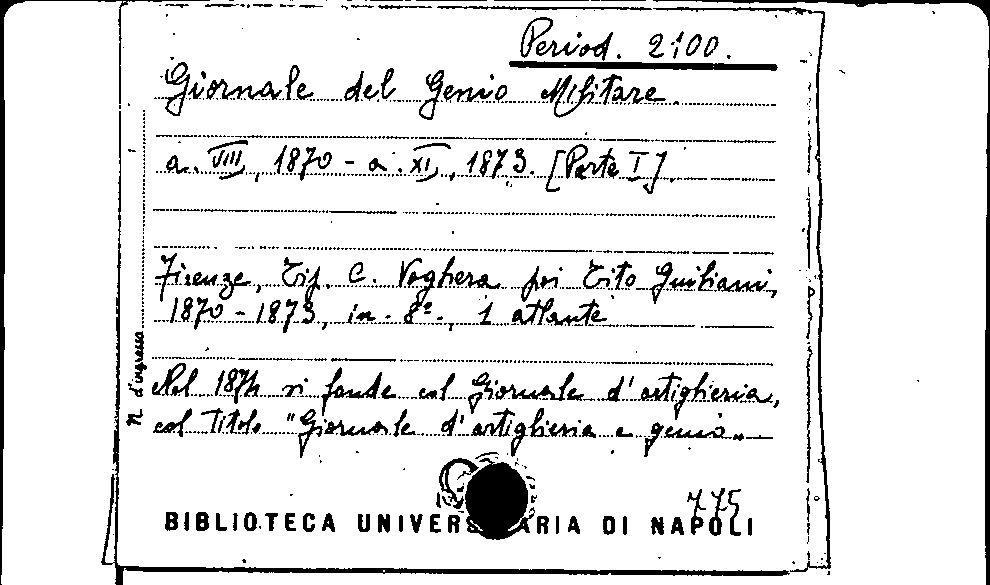 Period. 2100.
Giornale del Genio Militare.
a. VIII, 1870 - a. XI, 1873. [Parte I].
Firenze, Tip. C. Voghera poi Tito Giuliani,
1870-1873, in-8º., 1 atlante
Nel 1874 si fonde col Giornale d'artiglieria,
col titolo "Giornale d'artiglieria e genio"
N. d'ingresso
775
BIBLIOTECA UNIVERSITARIA DI NAPOLI